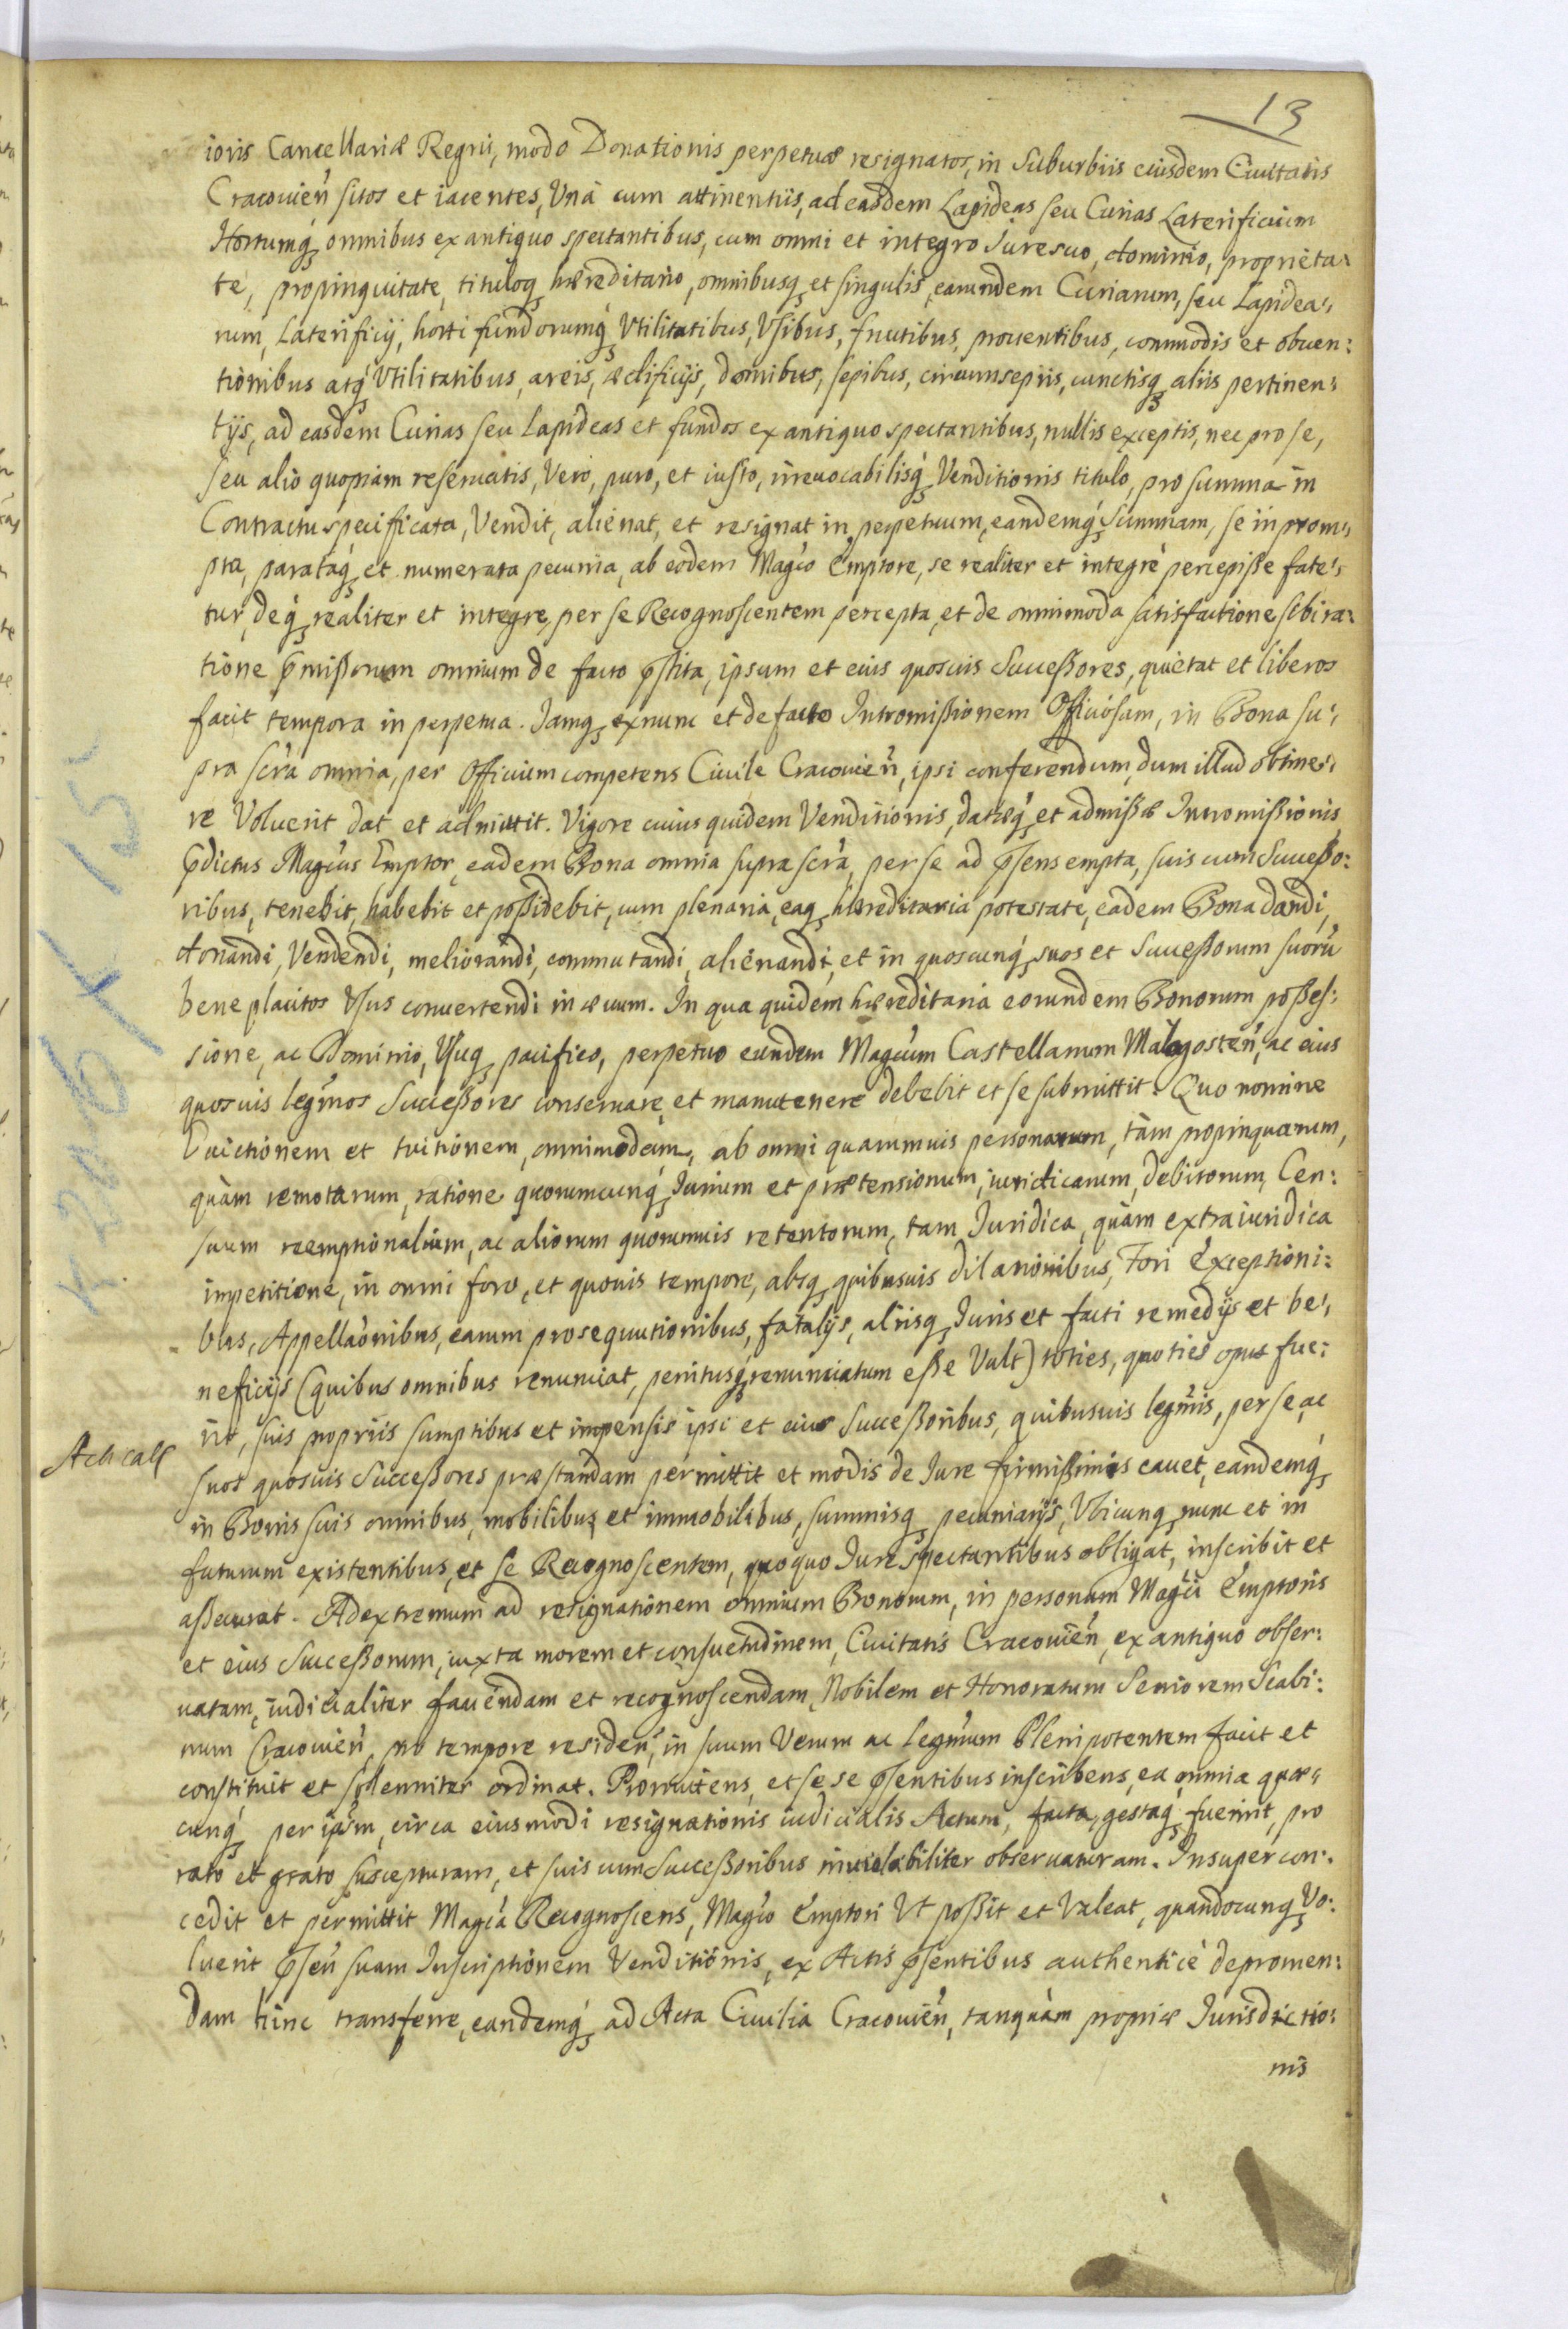 13
ioris Cancellariæ Regni, modo Donationis perpetuæ resignatos, in Suburbiis eiusdem Ciuitatis
Cracouień sitos et iacentes, Vnà cum attinentiis, ad easdem Lapideas seu Curias Laterificium
Hortumq́ omnibus ex antiquo spectantibus, cum omni et integro Iure suo, dominio, proprieta:
te, propinquitate, tituloq hæreditario, omnibusq et singulis, earundem Curiarum, seu Lapidea:
rum, Laterificij, horti fundorumq́ Vtilitatibus, Vsibus, fructibus, prouentibus, commodis et obuen:
tionibus atq́ Vtilitatibus, areis, ædificijs, domibus, sepibus, circumsepiis, cunctisq aliis pertinen:
tijs, ad easdem Curias seu Lapideas et fundos ex antiquo spectantibus, nullis exceptis, nec pro se,
seu alio quopiam reseruatis, Vero, puro, et iusto, irreuocabilisq́ Venditionis titulo, pro summa in
Contractu specifficata, Vendit, alienat, et resignat in perpetuum, eandemq́ Summam, se in prom:
pta, parataq́ et numerata pecunia, ab eodem Magćo Emptore, se realiter et integrè percepisse fate:
tur, deq́ realiter et integre, per se Recognoscentem percepta, et de omnimoda satisfactione sibi ra:
tione p̃missorum omnium de facto p̃stita, ipsum et eius quosuis Successores, quietat et liberos
facit tempora in perpetua. Iamq ex nunc et de facto Intromissionem Officiosam, in Bona su:
pra scrà omnia, per Officium competens Ciuile Cracouień, ipsi conferendum, dum illud obtine:
re Voluerit dat et admittit. Vigore cuius quidem Venditionis, datæq́ et admissæ Intromissionis
p̃dictus Magćus Emptor, eadem Bona omnia supra scrà, per se ad p̃sens empta, suis cum Successo:
ribus, tenebit, habebit et possidebit, cum plenaria, eaq hæreditaria potestate, eadem Bona dandi,
donandi, Vendendi, meliorandi, commutandi, alienandi, et in quoscunq́ suos et Successorum suorũ
bene placitos Vsus conuertendi in æuum. In qua quidem hæreditaria eorundem Bonorum posses:
sione, ac Dominio, Vsuq pacifico, perpetuo eundem Magćum Castellanum Malogosteń, ac eius
quosuis legm̃os Successores conseruare et manutenere debebit et se submittit. Quo nomine
Euictionem et tuitionem, omnimodam, ab omni quarumuis personarum, tàm propinquarum,
quàm remotarum, ratione quorumcunq́ Iurium et prætensionum, iuridicarum, debitorum, Cen:
suum reemptionalium, ac aliorum quorumuis retentorum, tam Iuridica, quàm extraiuridica
impetitione, in omni foro, et quouis tempore, absq quibusuis dilationibus, Fori Exceptioni:
bus, Appellaõnibus, earum prosequutionibus, fatalijs, aliisq Iuris et facti remedijs et be:
neficijs (quibus omnibus renunciat, penitusq́ renunciatum esse Vult) toties, quoties opus fue:
rit, suis propriis sumptibus et impensis ipsi et eius Successoribus, quibusuis legm̃is, per se, ac
suos quosuis Successores præstandam permittit et modis de Iure firmissimis cauet, eandemq́
in Bonis suis omnibus, mobilibus et immobilibus, summisq pecuniarijs, Vbicunq nunc et in
futurum existentibus, et se Recognoscentem, quoquo Iure spectantibus obligat, inscribit et
assecurat. Ad extremum ad resignationem omnium Bonorum, in personam Magći Emptoris
et eius Successorum, iuxta morem et consuetudinem, Ciuitatis Cracouień, ex antiquo obser:
uatam, iudicialiter fauendam et recognoscendam, Nobilem et Honoratum Seniorem Scabi:
num Cracouień, pro tempore resideń, in suum Verum ac legm̃um Plenipotentem facit et
constituit et solenniter ordinat. Promittens, et se se p̃sentibus inscribens, ea omnia quæ:
cunq́ per ipsm̃, circa eiusmodi resignationis iudicialis Actum, facta, gestaq́ fuerint, pro
rato et grato suscepturam, et suis cum Successoribus inuiolabiliter obseruaturam. Insuper con:
cedit et permittit Magćà Recognoscens, Magćo Emptori Vt possit et Valeat, quandocunq Vo:
luerit p̃seń suam Inscriptionem Venditionis, ex Actis p̃sentibus authenticè depromen:
dam hinc transferre, eandemq́ ad Acta Ciuilia Cracouień, tanquàm propriæ Iurisdictio:
nis